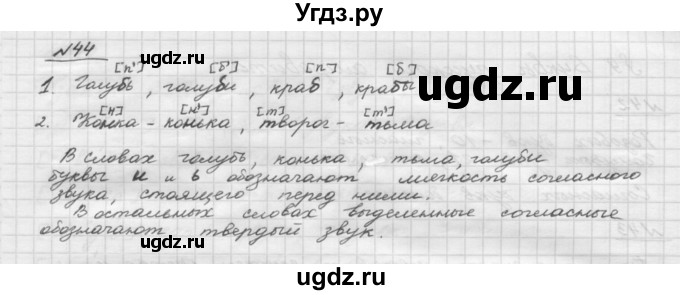 Угдз.ру
№44
[п'] [б'] [п] [б]
1. Голубь, голуби, краб, крабы
[н] [н'] [т] [т']
2. Конка - конька, творог - тьма
В словах голубь, конька, тьма, голуби
буквы и и ь обозначают мягкость согласного
звука, стоящего перед ними.
В остальных словах выделенные согласные
обозначают твердый звук.
ugdz.ru
ugdz.ru
ugdz.ru
ugdz.ru
ugdz.ru
ugdz.ru
ugdz.ru